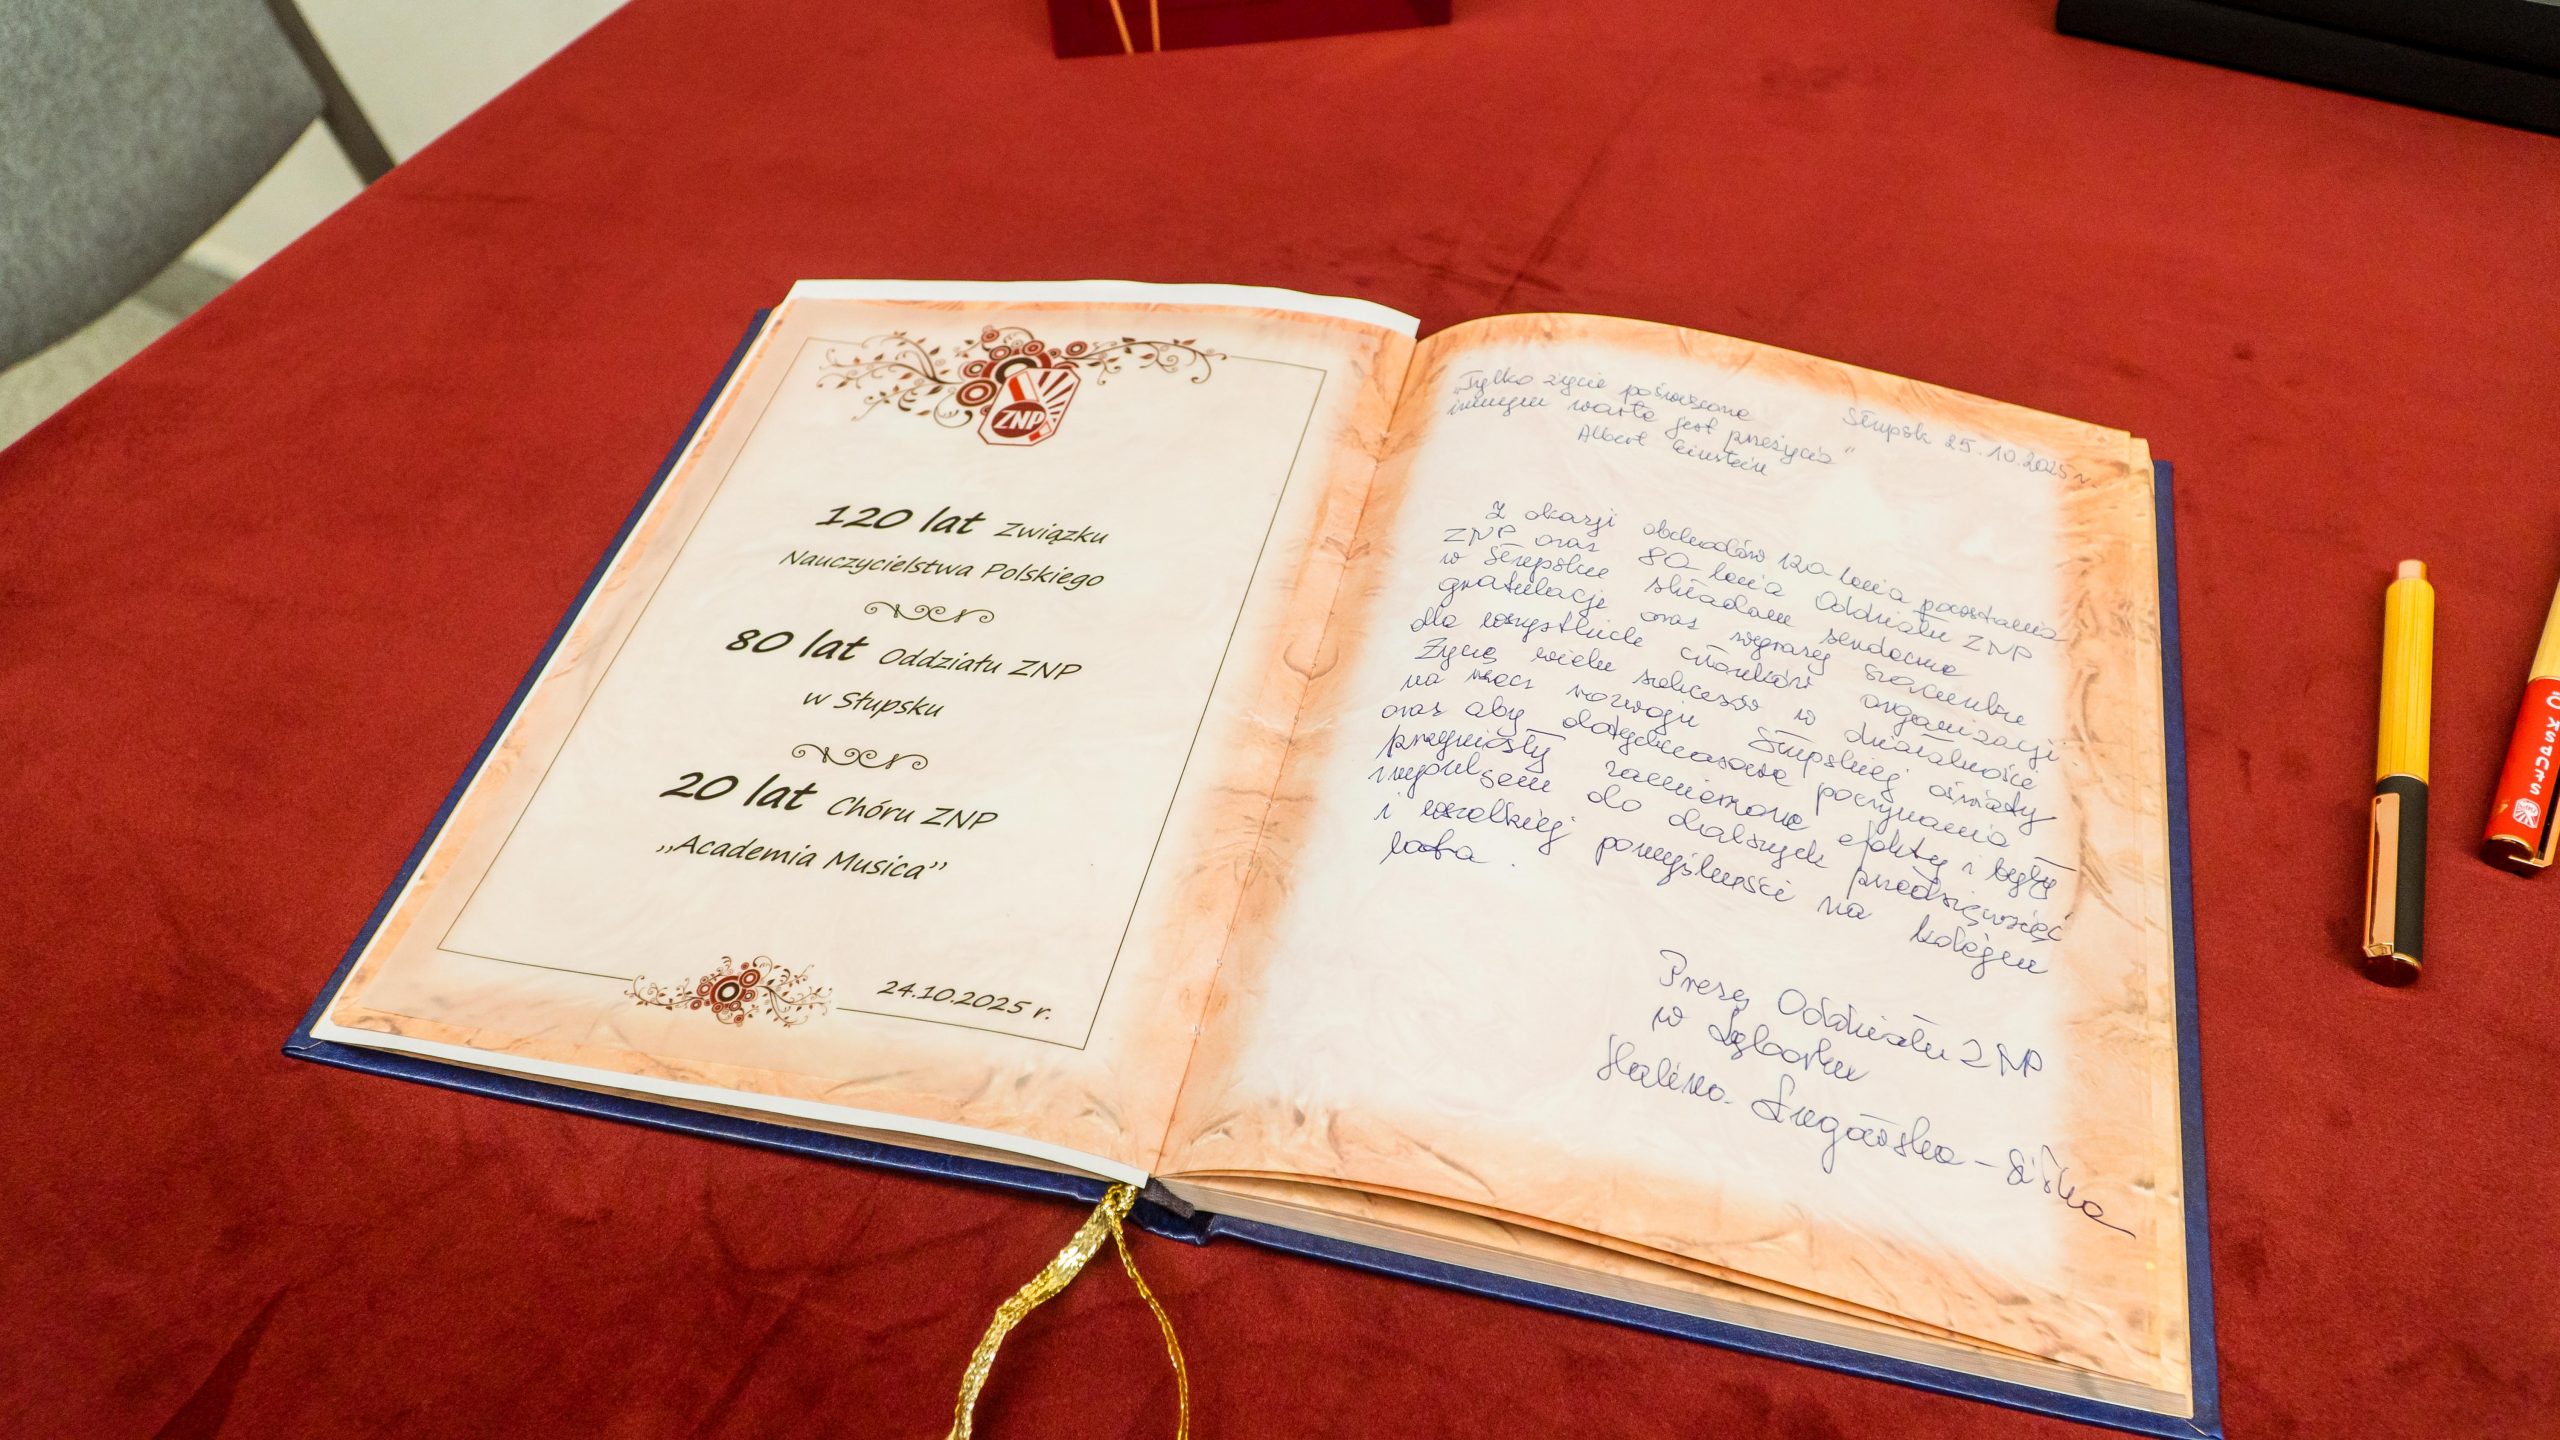 ZNP
120 lat Związku
Nauczycielstwa Polskiego
80 lat Oddziału ZNP
w Słupsku
20 lat Chóru ZNP
„Academia Musica”
24.10.2025 r.
„Tylko życie poświęcone
innym warte jest przeżycia”
Albert Einstein
Słupsk 25.10.2025 r.
Z okazji obchodów 120 lecia powstania
ZNP oraz 80 lecia Oddziału ZNP
w Słupsku składam serdeczne
gratulacje oraz wyrazy szacunku
dla wszystkich członków organizacji.
Życzę wielu sukcesów w działalności
na rzecz rozwoju Słupskiej oświaty
oraz aby dotychczasowe poczynania
przyniosły zamierzone efekty i były
impulsem do dalszych przedsięwzięć
i wszelkiej pomyślności na kolejne
lata.
Prezes Oddziału ZNP
w Lęborku
Halina
SŁUPSK